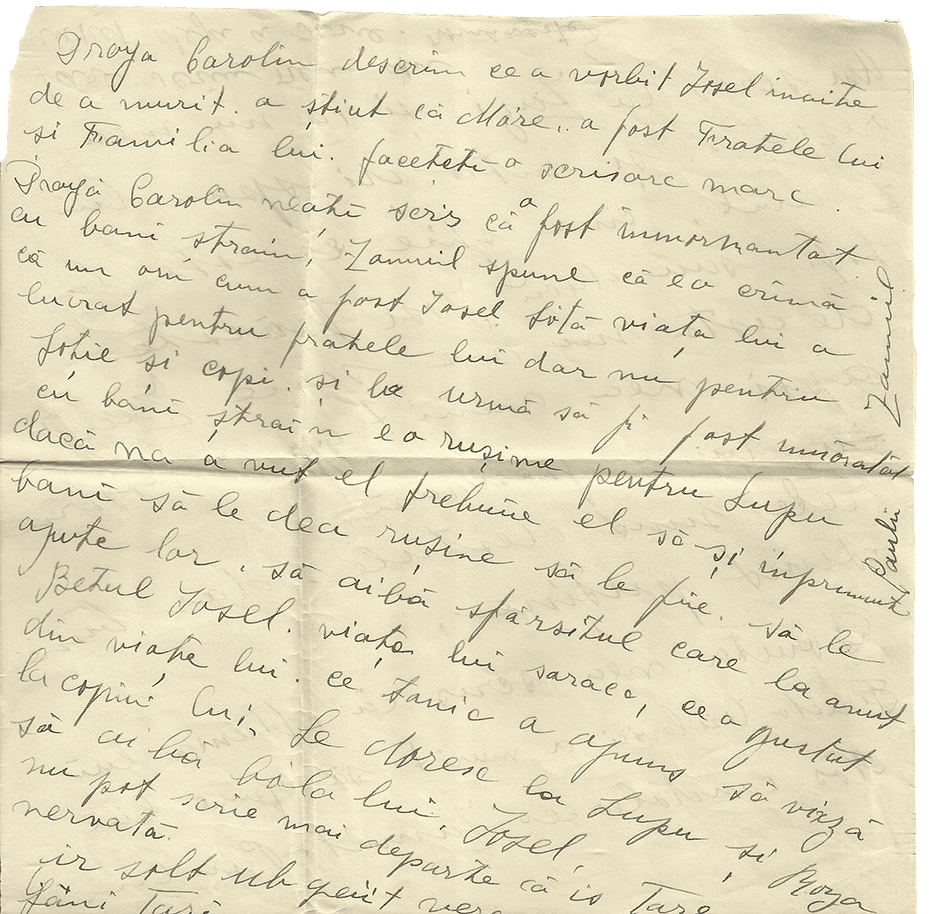 Draga Carolin descrim ce a vorbit Iosel inaite
de a murit. a știut că Mare.. a fost Fratele lui
si Familia lui. faceteti o scrisoare mare.
Dragă Carolin neati scris că a fost immormantat
cu bani straini, Zamuil spune că e o crimă
că un om cum a fost Iosel totă viața lui a
lucrat pentru fratele lui dar nu pentru
Soție si copi. si la urmă să fi fost
cu bani străin e o rușine pentru Lupu
dacă na a vut el trebuie el să și inprumut
bani să le dea rusine să le fie. să le
ajute lor. să aibă sfârsitul care la avut
Betul Iosel. viața lui saraca, ce a gustat
din viațe lui. ce a ajuns să vază
la copiii lui. Le doresc la Lupu si Roza
să aiba bóla lui Iosel,
nu pot scrie mai departe că is Tare
nervată.
ir solt
Tară
Zamuil
Paulin